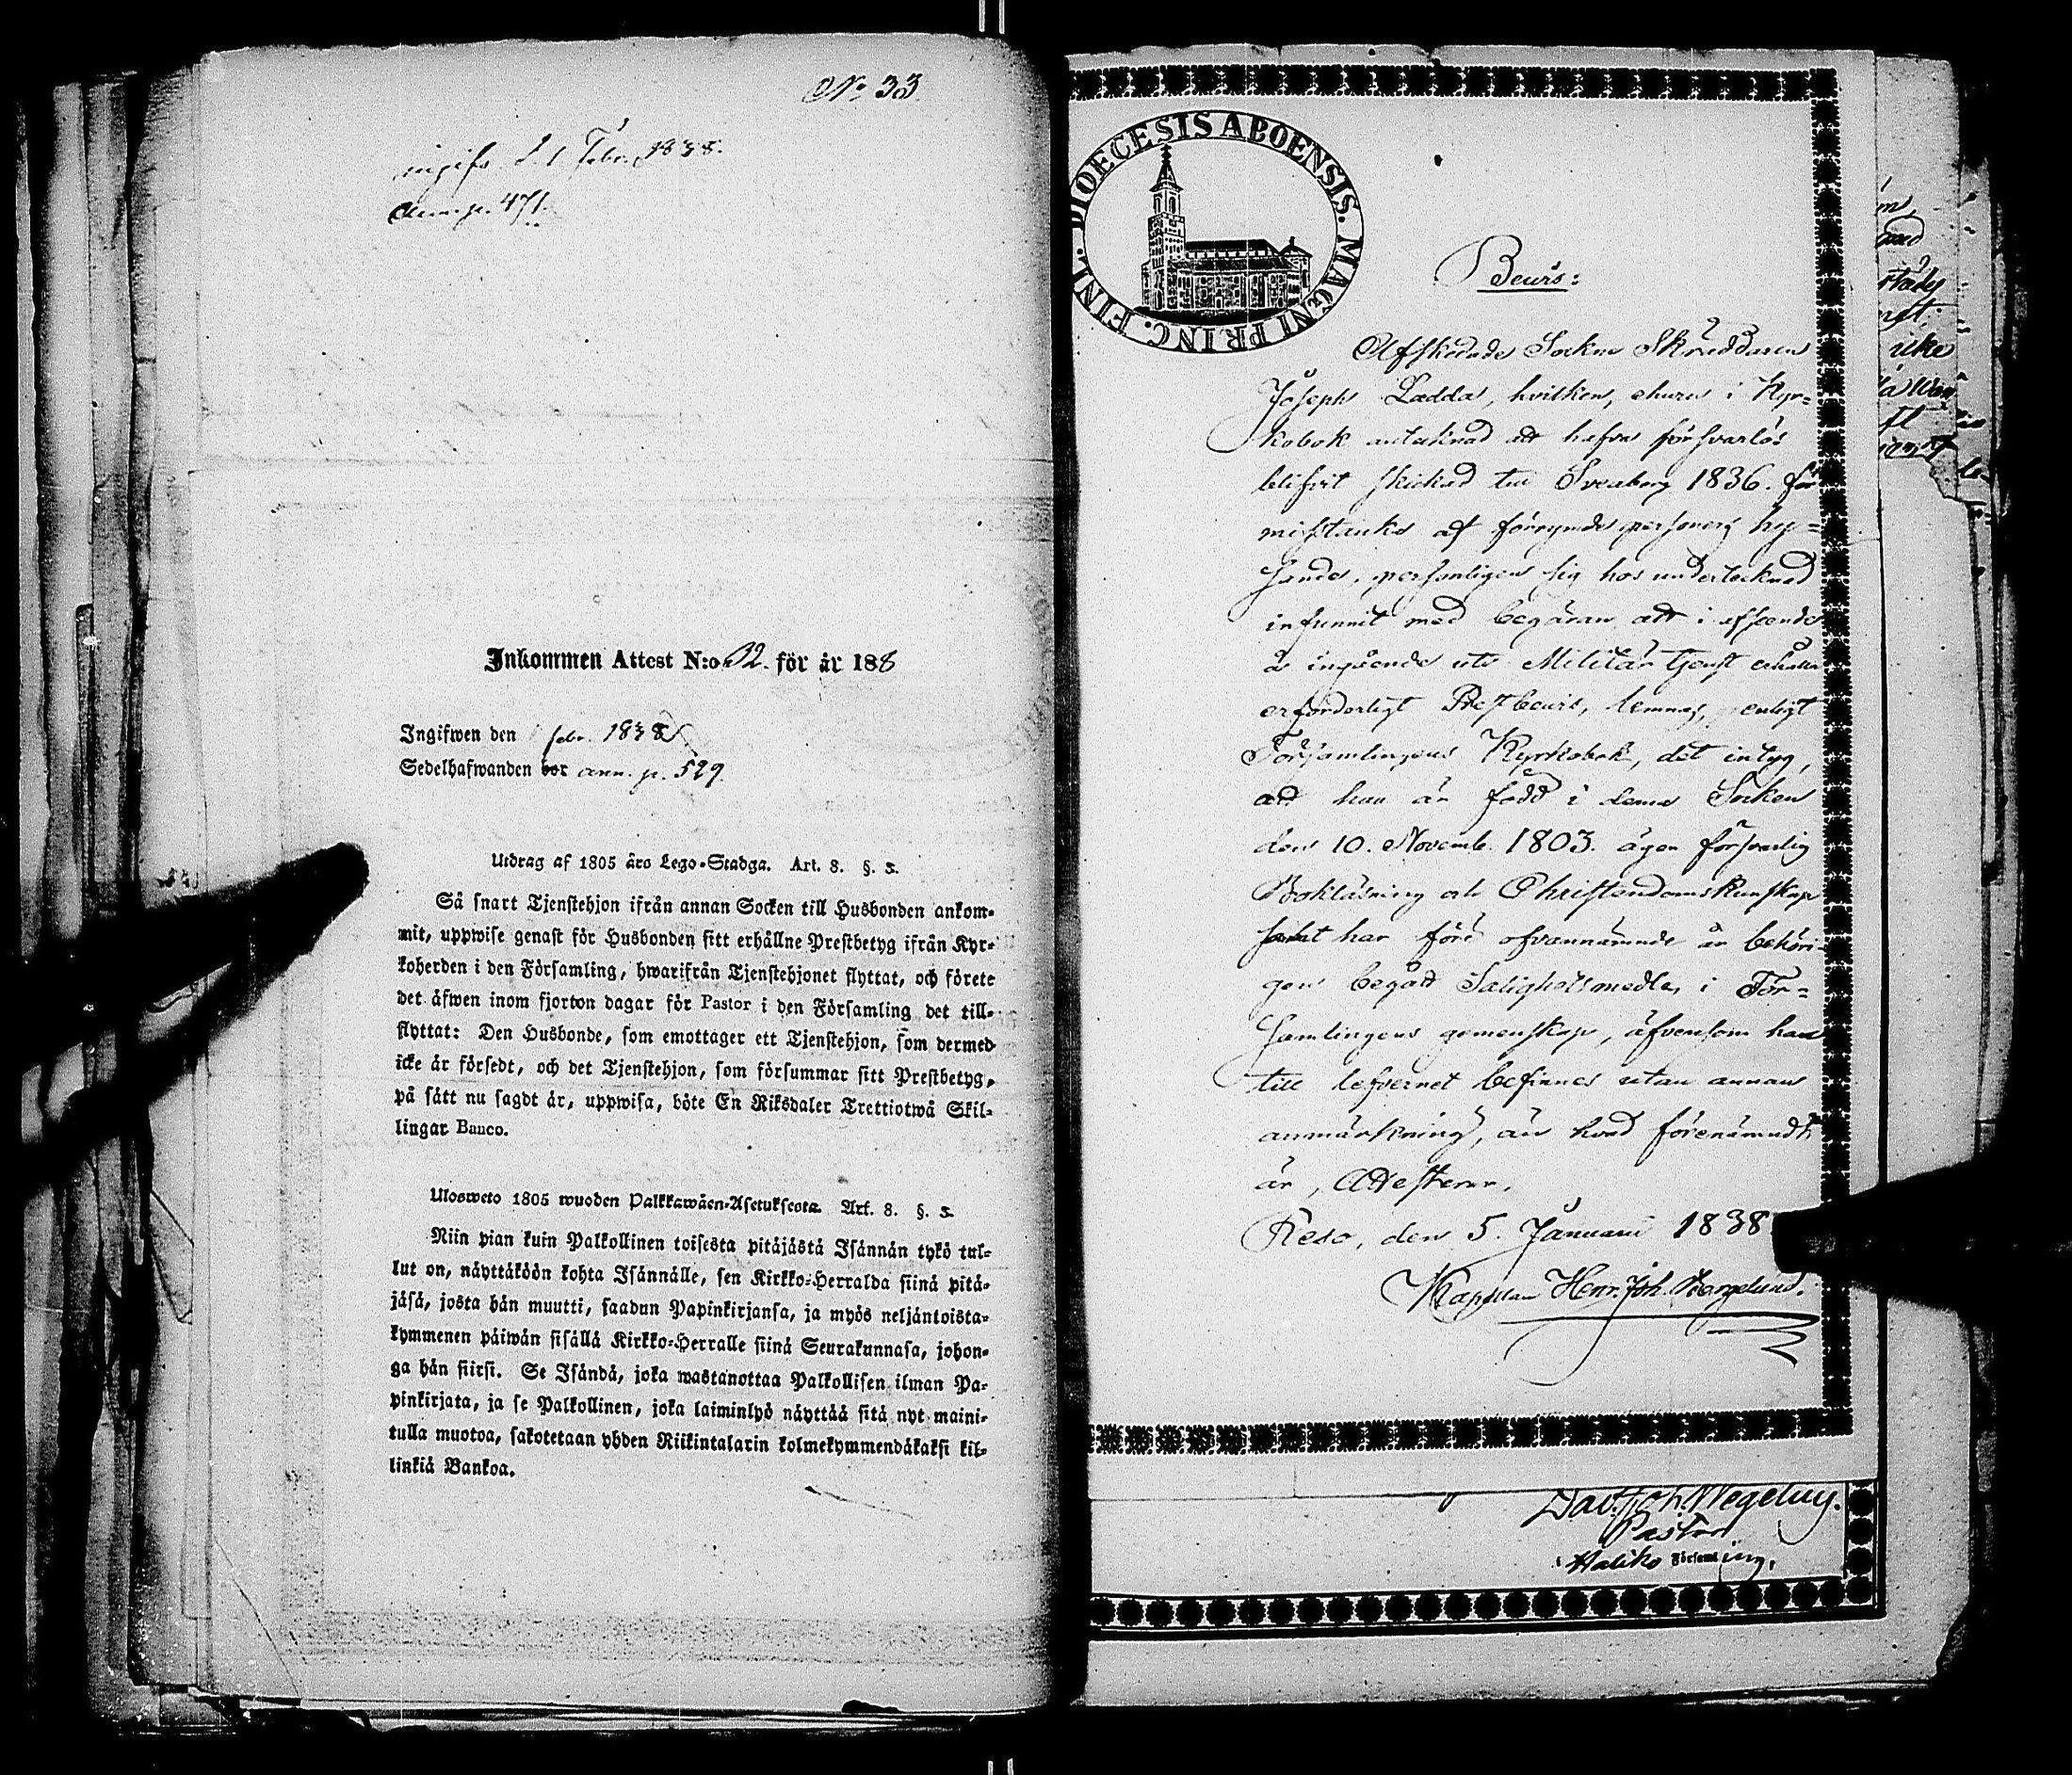 No 33.
ingifv. d. 1 Febr. 1838.
ann. p. 471.
Inkommen Attest N:o 32. för år 188
Ingifwen den 1 febr. 1838
Sedelhafwanden bor ann. p. 529.
Utdrag af 1805 års Lego-Stadga. Art. 8. §. 3.
Så snart Tjenstehjon ifrån annan Socken till Husbonden ankom-
mit, uppwise genast för Husbonden sitt erhållne Prestbetyg ifrån Kyr-
koherden i den Församling, hwarifrån Tjenstehjonet flyttat, och förete
det äfwen inom fjorton dagar för Pastor i den Församling det till-
flyttat: Den Husbonde, som emottager ett Tjenstehjon, som dermed
icke är försedt, och det Tjenstehjon, som försummar sitt Prestbetyg,
på sätt nu sagdt är, uppwisa, böte En Riksdaler Trettiotwå Skil-
lingar Banco.
Ulosweto 1805 wuoden Palkkawäen-Asetuksesta. Art. 8. §. 3.
Niin pian kuin Palkollinen toisesta pitäjästä Isännän tykö tul-
lut on, näyttäköön kohta Isännälle, sen Kirkko-Herralda siinä pitä-
jäsä, josta hän muutti, saadun Papinkirjansa, ja myös neljäntoista-
kymmenen päiwän sisällä Kirkko-Herralle siinä Seurakunnasa, johon-
ga hän siirsi. Se Isändä, joka wastanottaa Palkollisen ilman Pa-
pinkirjata, ja se Palkollinen, joka laiminlyö näyttää sitä nyt maini-
tulla muotoa, sakotetaan yhden Riikintalarin kolmekymmendäkaksi kil-
linkiä Bankoa.
DIOECESIS ABOENSIS. MAGNI PRINC. FINL.
Bevis:
Afskedade Sockne Skräddaren
Joseph Ladda, hvilken, ehuru i Kyr-
kobok antecknad att hafva försvarlös
blifvit skickad till Sveaborg 1836. för
misstanke af förrymde personers hy-
sande, personligen sig hos undertecknad
infunnit med begäran att i afseende
å ingående uti Militär tjenst erhålla
erforderligt Prestbevis, lemnas, enligt
Församlingens Kyrkobok, det intyg,
att han är född i denna Socken
den 10. Novemb. 1803. äger försvarlig
Bokläsning och Christendomskunskap
samt har före ofvannämnde år behöri-
gen begått Salighetsmedlen i För-
samlingens gemenskap, äfvensom han
till lefvernet befinnes utan annan
anmärkning, än hvad förenämndt
är, Attesterar,
Reso, den 5. Januarii 1838.
Kapellan Henr. Joh.
Dav. Joh. Wegelius.
Pastor
Haliko Församling.